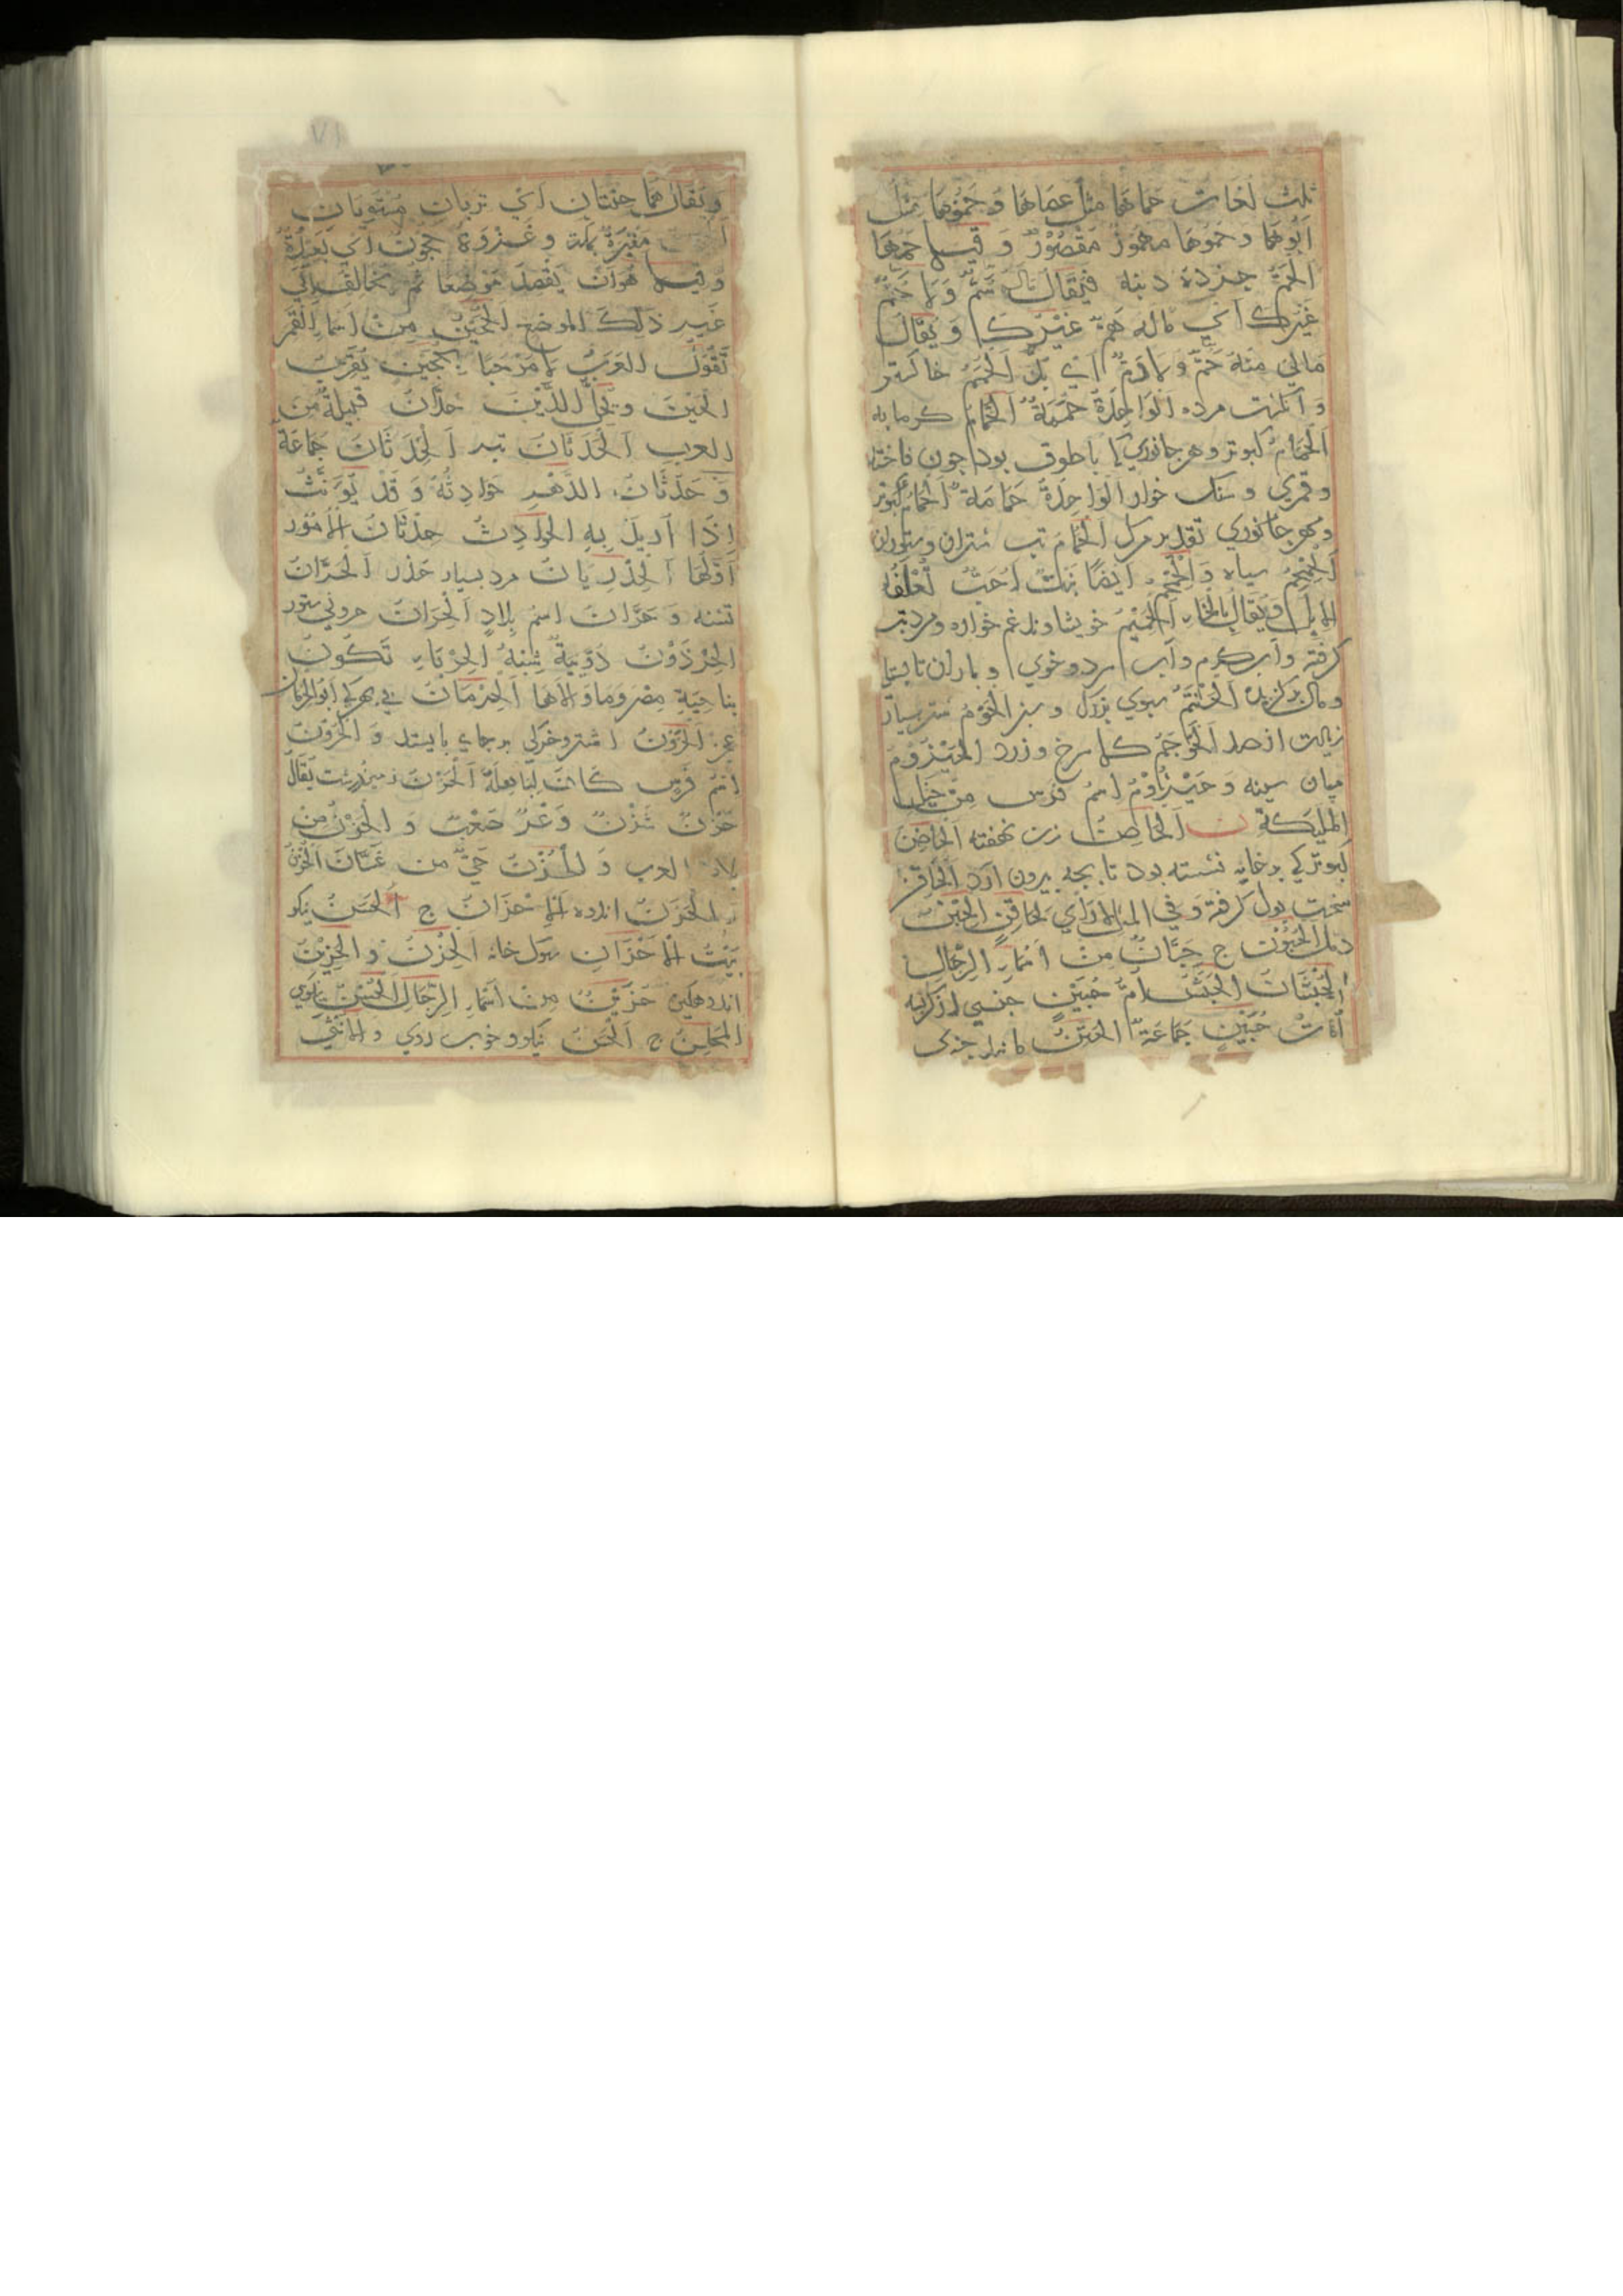 ثلث لغات حماها مثل عصاها و حموها مثل
ابوها و حموها مهموز مقصور و قيل حمها
الحم جزده دنبه فيقال ماله سم ولا حم
غيرك اي ماله هم غيرك و يقال
مالي منه حم ولا رم اي بد الحمم خاكستر
و انكشت مرده الواحدة حممة الحمام كرمابه
الحمام كبوتر و هر جانوري كه با طوق بود چون فاخته
و قمري و سنك خوار الواحدة حمامة الحمام كبوتر
و مهر جانوري تقدير مرك الحمام تب شتران و ستوران
الحمحم سياه و الحمحم ايضا نبت احب تعلفه
الابل و يقال بالخاء الحميم خويشاوند غم خواره و مرد تب
كرفته و آب كرم و آب سرد و خوي و باران تابستا
و مال بركزيده الحنتم سبوي بزرك و سبز الحوم شتر بسيار
زيادت از صد الحوجم كل سرخ و زرد الحيزوم
ميان سينه و حيزوم اسم فرس من خيل
المليكة ن الحاصن زن نهفته الحاضن
كبوتر كي بر خايه نشسته بود تا بچه بيرون آرد الحاقن
سخت بول كرفته و في المثل لا راي لحاقن الحبن
دمل الحبون ج حبان من اسماء الرجال
الحبشان الحبش ام حبين جنسي از كربه
امات حبين جماعة الحتن مانند چيزي
و يقال هما حتنان اي تربان مستويان
مقبرة بمكة و غزوة حجون اي بعيدة
و قيل هو ان يقصد موضعا ثم يخالف الي
غير ذلك الموضع الحجين من اسما القمر
تقول العرب لا مرحبا بحجين يقرب
الحين و يحل الدين حدان قبيلة من
العرب الحدثان تبر الحدثان جماعة
و حدثان الدهر حوادثه و قد يونث
اذا اريد به الحوادث حدثان الامور
اولها الحذريان مرد بسيار حذر الحران
تشنه و حران اسم بلاد الحران حروني ستور
الحرذون دويبة تشبه الحرباء تكون
بناحية مصر و ما والاها الحرمان بي بهركي ابو الحرمان
اشتر و خر كي بر جاي بايستد و الحرون
اسم فرس كانت لباهلة الحزن زمين درشت يقال
حزن شزن وعر صعب و الحزن من
بلاد العرب و الحزن حي من غسان الحزن
و الحزن اندوه الاحزان ج الحسن نيكو
بيت الاحزان سول خانه الحزن و الحزين
اندوهكين حزين من اسماء الرجال الحسن نيكويي
المحاسن ج الحسن نيكو و خوب روي و الانثي